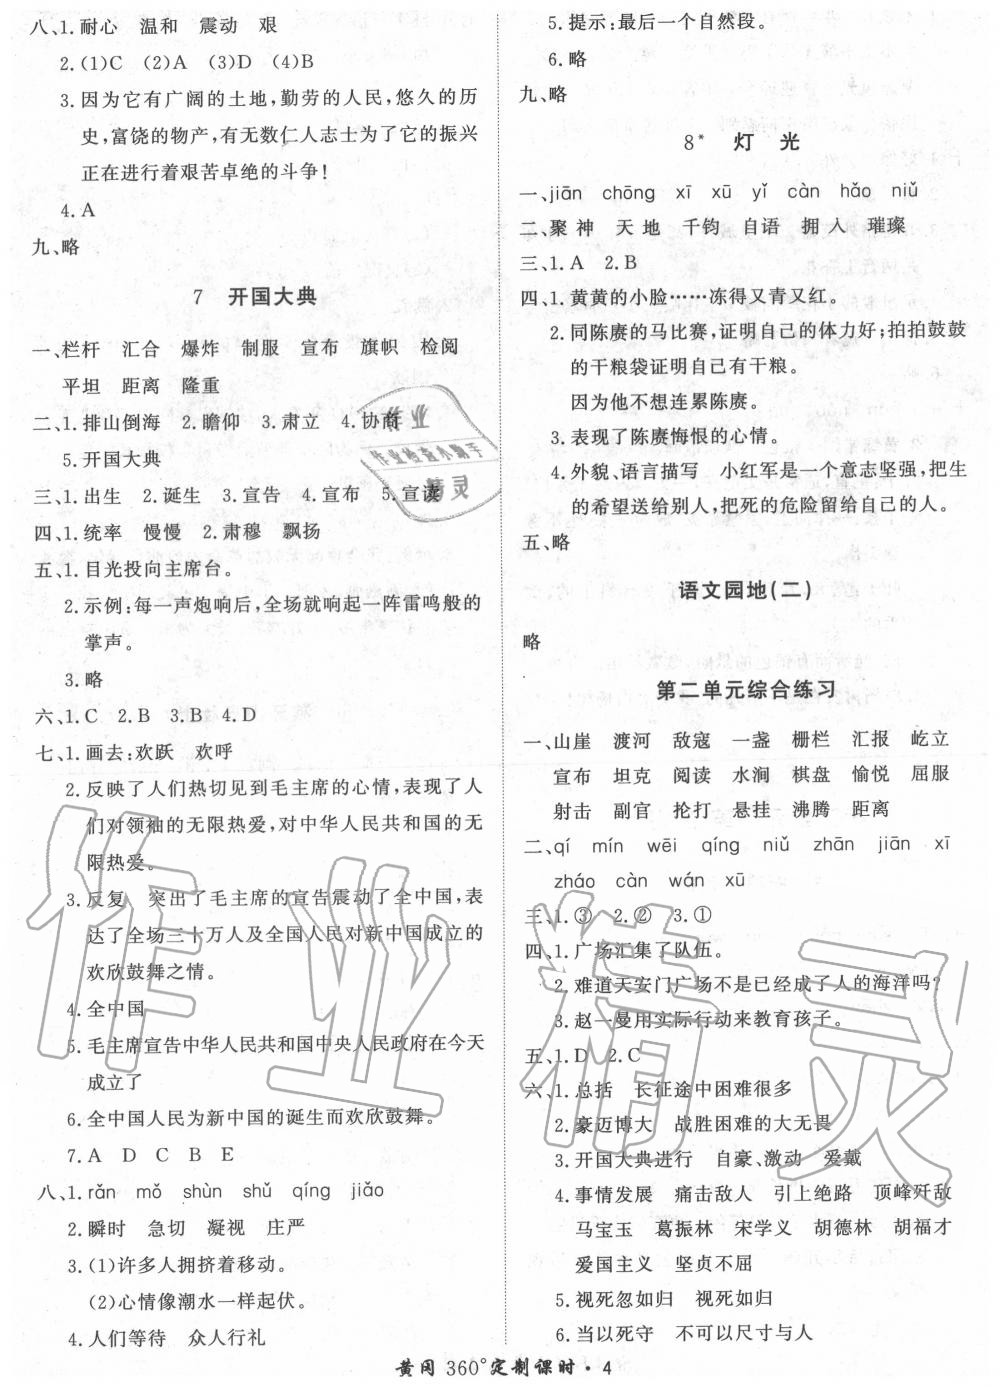 八、1.耐心 温和 震动 艰
2.(1)C (2)A (3)D (4)B
3.因为它有广阔的土地,勤劳的人民,悠久的历
史,富饶的物产,有无数仁人志士为了它的振兴
正在进行着艰苦卓绝的斗争!
4.A
九、略
7 开国大典
一、栏杆 汇合 爆炸 制服 宣布 旗帜 检阅
平坦 距离 隆重
二、1.排山倒海 2.瞻仰 3.肃立 4.协商
5.开国大典
三、1.出生 2.诞生 3.宣告 4.宣布 5.宣读
四、1.统率 慢慢 2.肃穆 飘扬
五、1.目光投向主席台。
2.示例:每一声炮响后,全场就响起一阵雷鸣般的
掌声。
3.略
六、1.C 2.B 3.B 4.D
七、1.画去:欢跃 欢呼
2.反映了人们热切见到毛主席的心情,表现了人
们对领袖的无限热爱,对中华人民共和国的无
限热爱。
3.反复 突出了毛主席的宣告震动了全中国,表
达了全场三十万人及全国人民对新中国成立的
欢欣鼓舞之情。
4.全中国
5.毛主席宣告中华人民共和国中央人民政府在今天
成立了
6.全中国人民为新中国的诞生而欢欣鼓舞。
7.A D C B E
八、1.rǎn mǒ shùn shǔ qíng jiǎo
2.瞬时 急切 凝视 庄严
3.(1)许多人拥挤着移动。
(2)心情像潮水一样起伏。
4.人们等待 众人行礼
5.提示:最后一个自然段。
6.略
九、略
8* 灯光
一、jiān chōng xī xū yǐ càn hǎo niǔ
二、聚神 天地 千钧 自语 拥入 璀璨
三、1.A 2.B
四、1.黄黄的小脸……冻得又青又红。
2.同陈赓的马比赛,证明自己的体力好;拍拍鼓鼓
的干粮袋证明自己有干粮。
因为他不想连累陈赓。
3.表现了陈赓悔恨的心情。
4.外貌、语言描写 小红军是一个意志坚强,把生
的希望送给别人,把死的危险留给自己的人。
五、略
语文园地(二)
略
第二单元综合练习
一、山崖 渡河 敌寇 一盏 栅栏 汇报 屹立
宣布 坦克 阅读 水涧 棋盘 愉悦 屈服
射击 副官 抡打 悬挂 沸腾 距离
二、qí mín wēi qíng niǔ zhān jiān xī
zháo càn wán xū
三、1.③ 2.② 3.①
四、1.广场汇集了队伍。
2.难道天安门广场不是已经成了人的海洋吗?
3.赵一曼用实际行动来教育孩子。
五、1.D 2.C
六、1.总括 长征途中困难很多
2.豪迈博大 战胜困难的大无畏
3.开国大典进行 自豪、激动 爱戴
4.事情发展 痛击敌人 引上绝路 顶峰歼敌
马宝玉 葛振林 宋学义 胡德林 胡福才
爱国主义 坚贞不屈
5.视死忽如归 视死如归
6.当以死守 不可以尺寸与人
黄冈 360°定制课时·4
作业精灵
作业
作业检查小助手
精灵